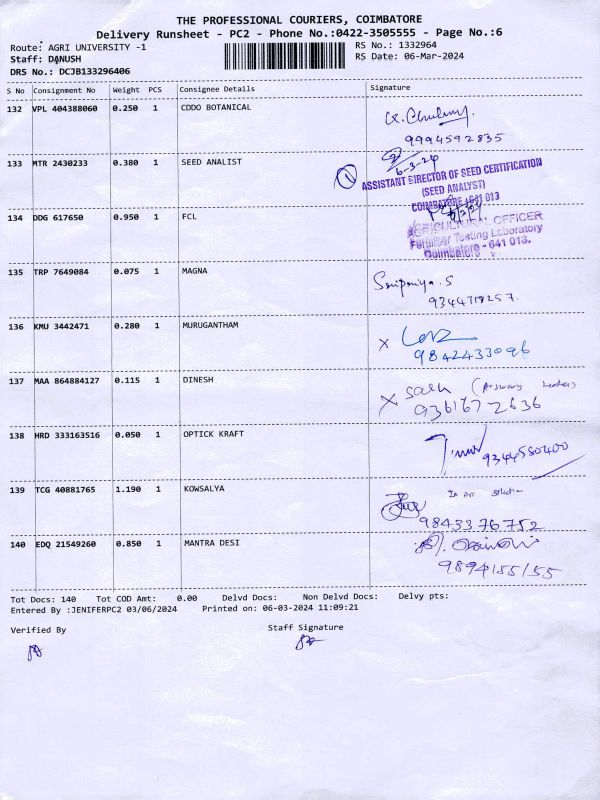 THE PROFESSIONAL COURIERS, COIMBATORE
Delivery Runsheet - PC2 - Phone No.:0422-3505555 - Page No.:6
Route: AGRI UNIVERSITY -1
RS No.: 1332964
Staff: DANUSH
RS Date: 06-Mar-2024
DRS No.: DCJB133296406
S No Consignment No Weight PCS Consignee Details Signature
132 VPL 404388060 0.250 1 CDDO BOTANICAL
9994592835
133 MTR 2430233 0.380 1 SEED ANALIST
6-3-24
ASSISTANT DIRECTOR OF SEED CERTIFICATION
(SEED ANALYST)
COIMBATORE - 641 013
134 DDG 617650 0.950 1 FCL
AGRICULTURAL OFFICER
Fertiliser Testing Laboratory
Coimbatore - 641 013.
135 TRP 7649084 0.075 1 MAGNA
9344718257
136 KMU 3442471 0.280 1 MURUGANTHAM
9842433096
137 MAA 864884127 0.115 1 DINESH
9361672636
138 HRD 333163516 0.050 1 OPTICK KRAFT
9344580400
139 TCG 40881765 1.190 1 KOWSALYA
9843376752
140 EDQ 21549260 0.850 1 MANTRA DESI
9894155155
Tot Docs: 140 Tot COD Amt: 0.00 Delvd Docs: Non Delvd Docs: Delvy pts:
Entered By :JENIFERPC2 03/06/2024 Printed on: 06-03-2024 11:09:21
Verified By
Staff Signature